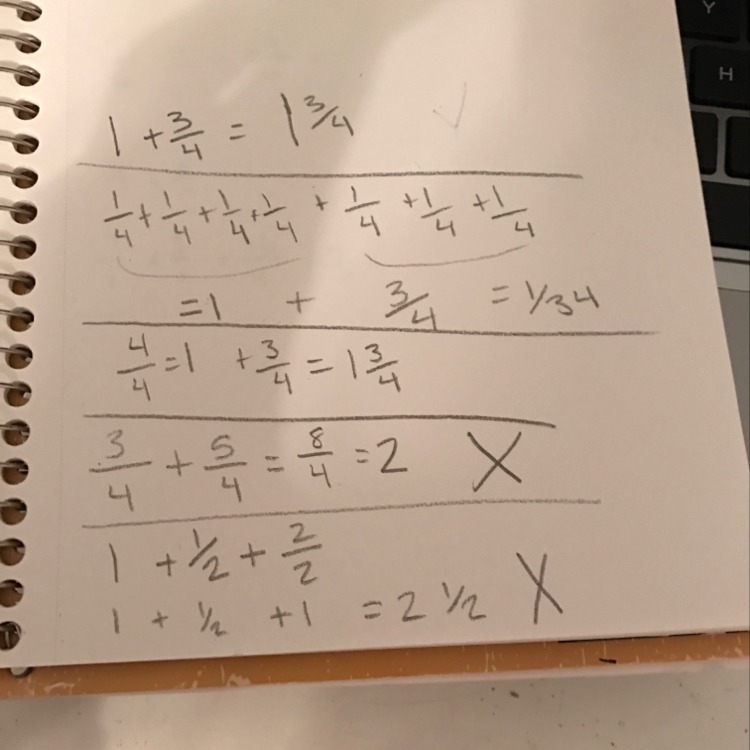 1 + 3/4 = 1 3/4 ✓
1/4 + 1/4 + 1/4 + 1/4 + 1/4 + 1/4 + 1/4
= 1 + 3/4 = 1/34
4/4 = 1 + 3/4 = 1 3/4
3/4 + 5/4 = 8/4 = 2 X
1 + 1/2 + 2/2
1 + 1/2 + 1 = 2 1/2 X
Y
H